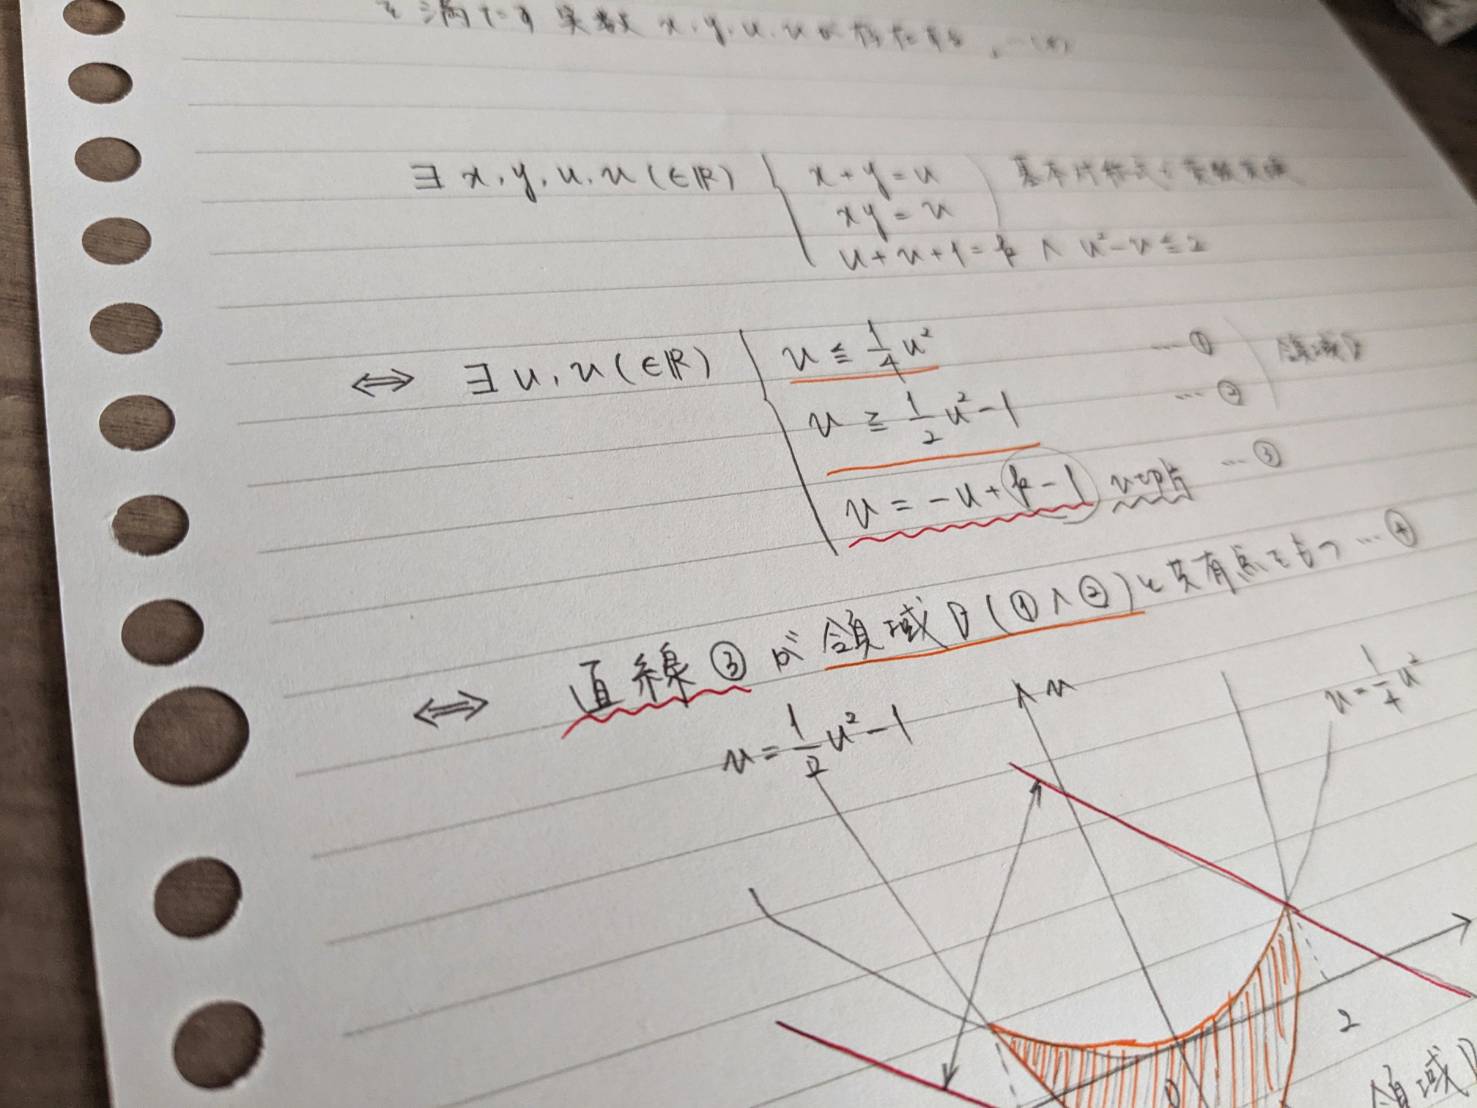 を満たす実数 x, y, u, v が存在する
∃ x, y, u, v (∈ℝ) { x + y = u
xy = v
u + v + 1 = k ∧ u² - v ≦ 2
⇔ ∃ u, v (∈ℝ) { v ≦ 1/4 u² … ① 領域D
v ≧ 1/2 u² - 1 … ②
v = -u + k - 1 v切片 … ③
⇔ 直線③が領域D(①∧②)と共有点をもつ … ④
v = 1/2 u² - 1
v
v = 1/4 u²
2
0
領域D